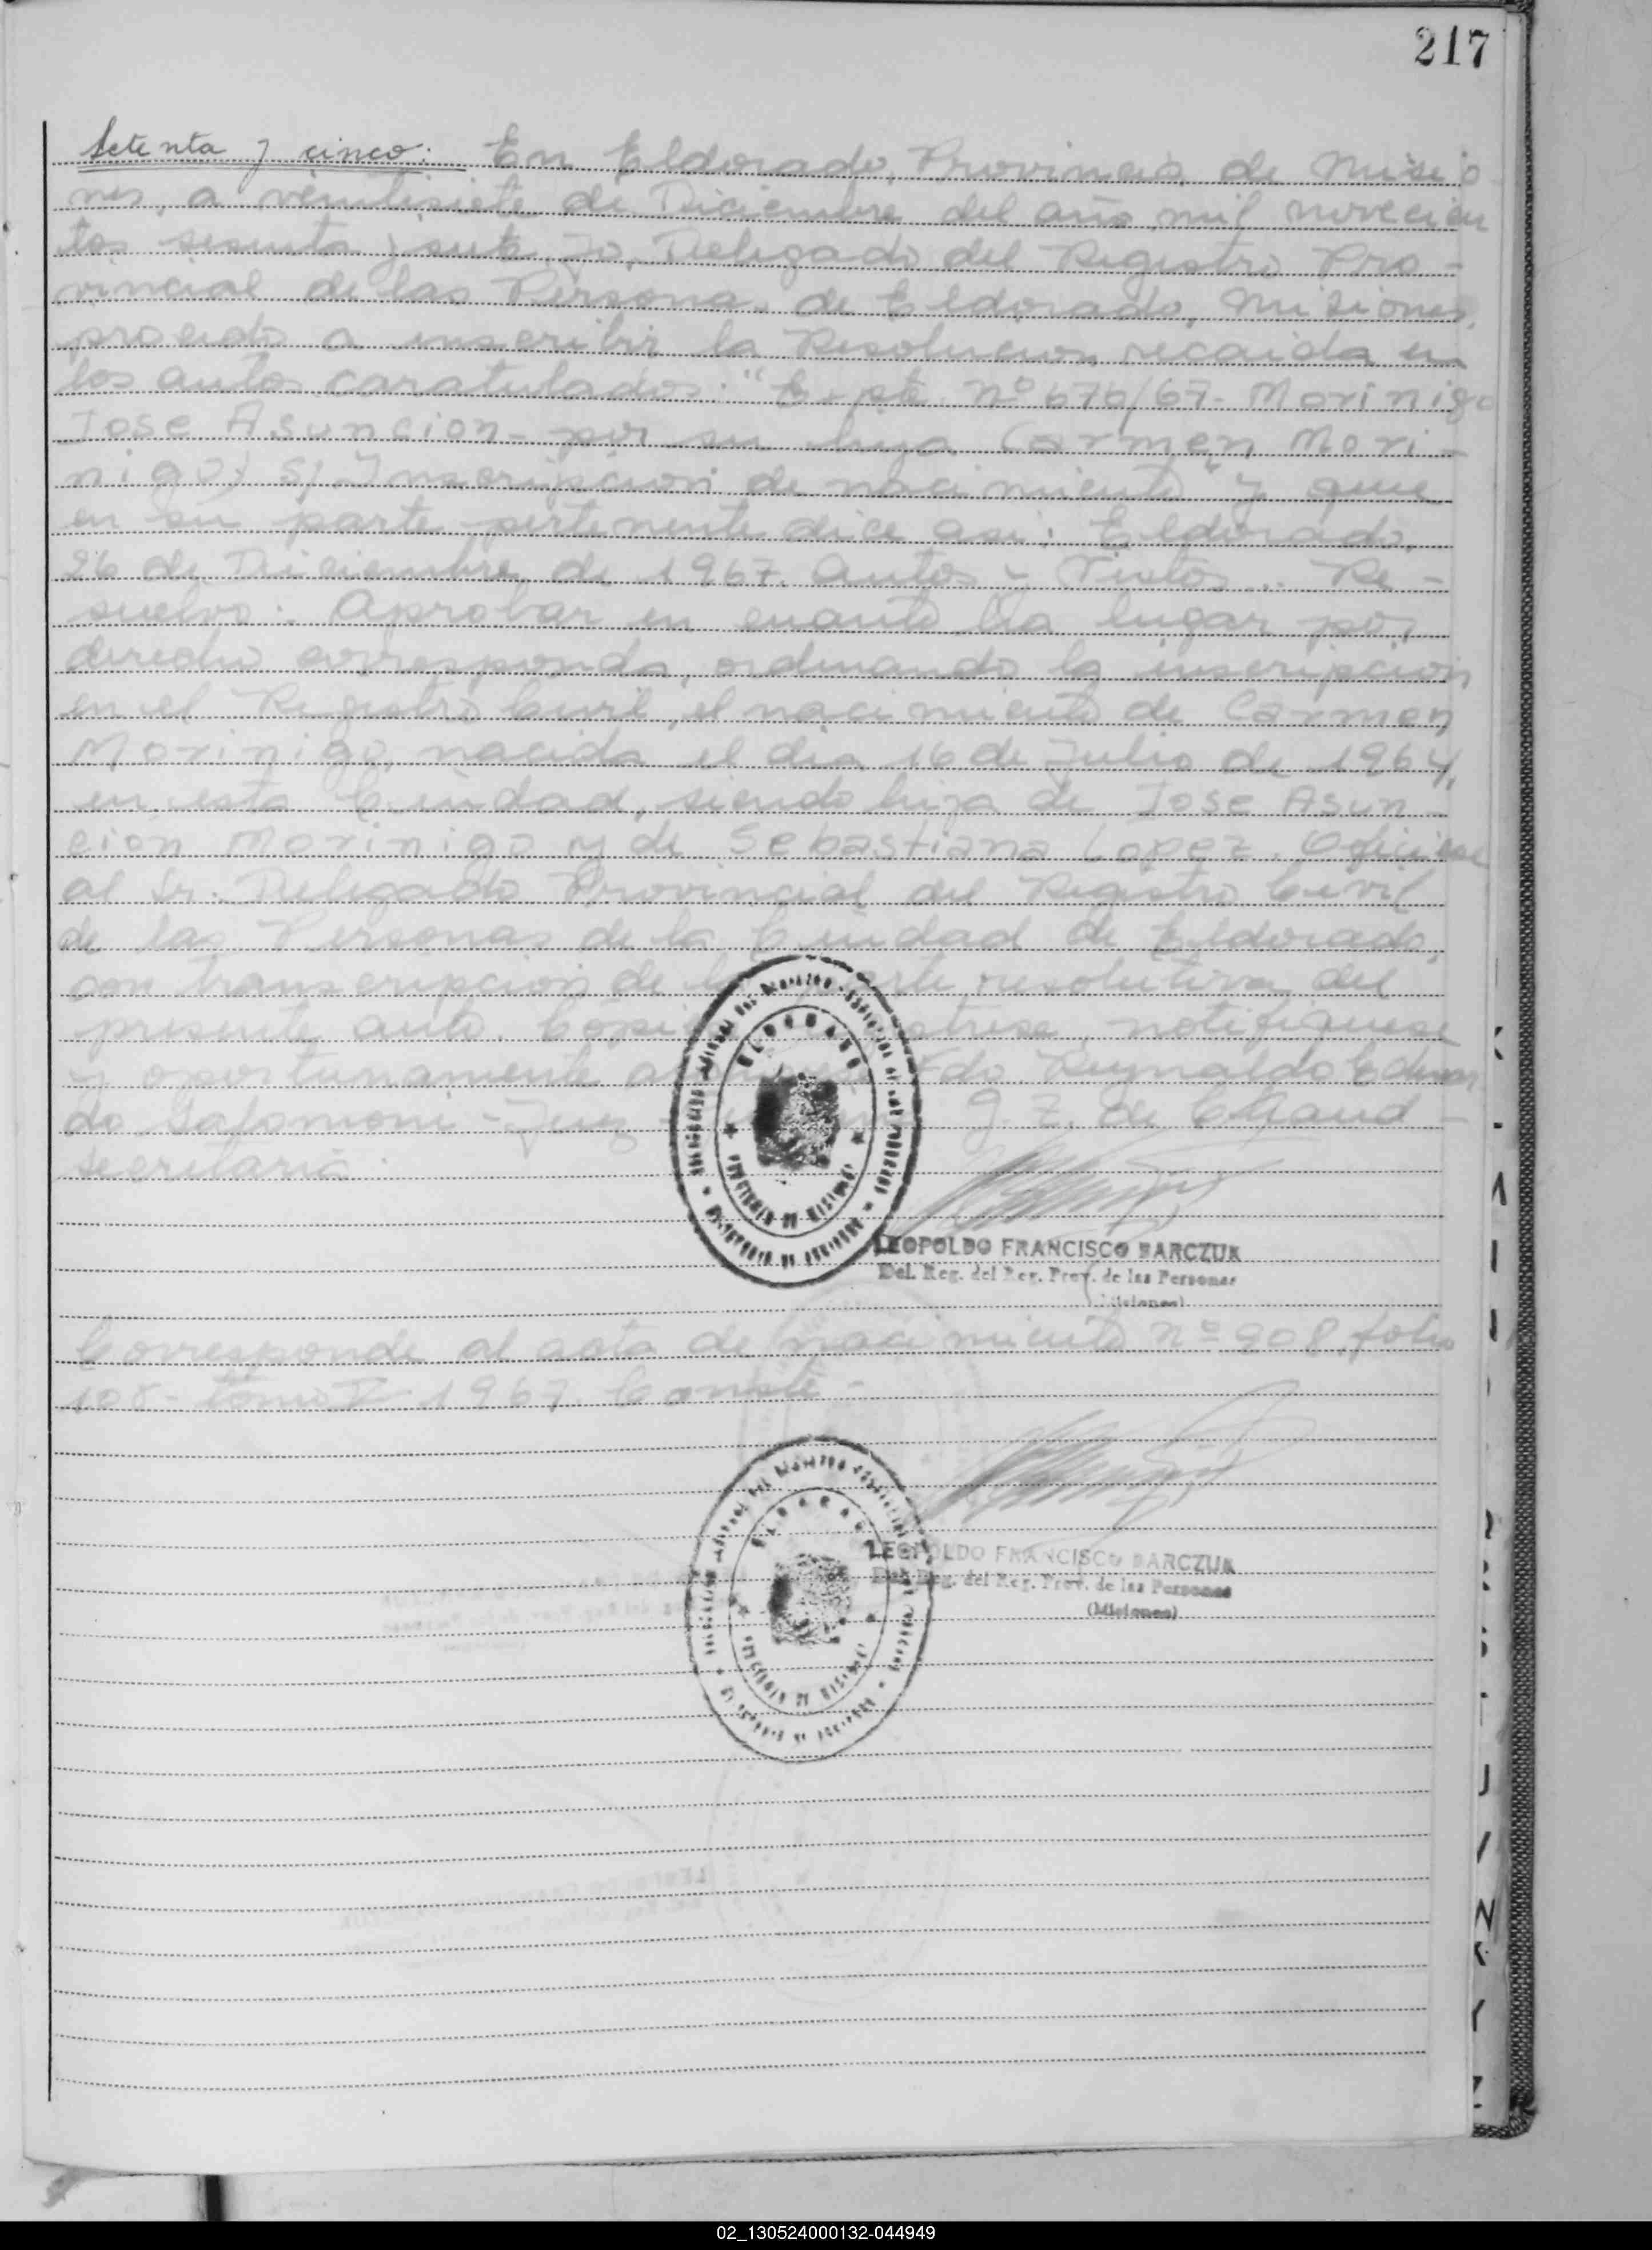 217
Setenta y cinco: En Eldorado, Provincia de Misio
nes, a veintisiete de Diciembre del año mil novecien
tos sesenta y siete, Yo, Delegado del Registro Pro-
vincial de las Personas de Eldorado, Misiones,
procedo a inscribir la Resolucion recaida en
los autos caratulados: "Expte. Nº 676/67- Morinigo
Jose Asuncion- por su hija Carmen Mori-
nigo) S/ Inscripcion de nacimiento" y que
en su parte pertenente dice asi: Eldorado,
26 de Diciembre de 1967. Autos y Vistos... Re-
suelvo: Aprobar en cuanto ha lugar por
derecho corresponda, ordenando la inscripcion
en el Registro Civil, el nacimiento de Carmen
Morinigo, nacida el dia 16 de Julio de 1964,
en esta Ciudad, siendo hija de Jose Asun-
cion Morinigo y de Sebastiana Lopez. Oficiese
al Sr. Delegado Provincial del Registro Civil
de las Personas de la Ciudad de Eldorado,
con transcripcion de la parte resolutiva del
presente auto. notifiquese
y oportunamente Fdo. Reynaldo Eduar
do Salomoni - Juez G. Z. de Chaud-
secretaria.
ELDORADO
PROVINCIA DE MISIONES
LEOPOLDO FRANCISCO BARCZUK
Del. Reg. del Reg. Prov. de las Personas
(Misiones)
Corresponde al acta de nacimiento nº 908, folio
108- tomo V 1967. Conste-
ELDORADO
PROVINCIA DE MISIONES
LEOPOLDO FRANCISCO BARCZUK
Del. Reg. del Reg. Prov. de las Personas
(Misiones)
02_130524000132-044949